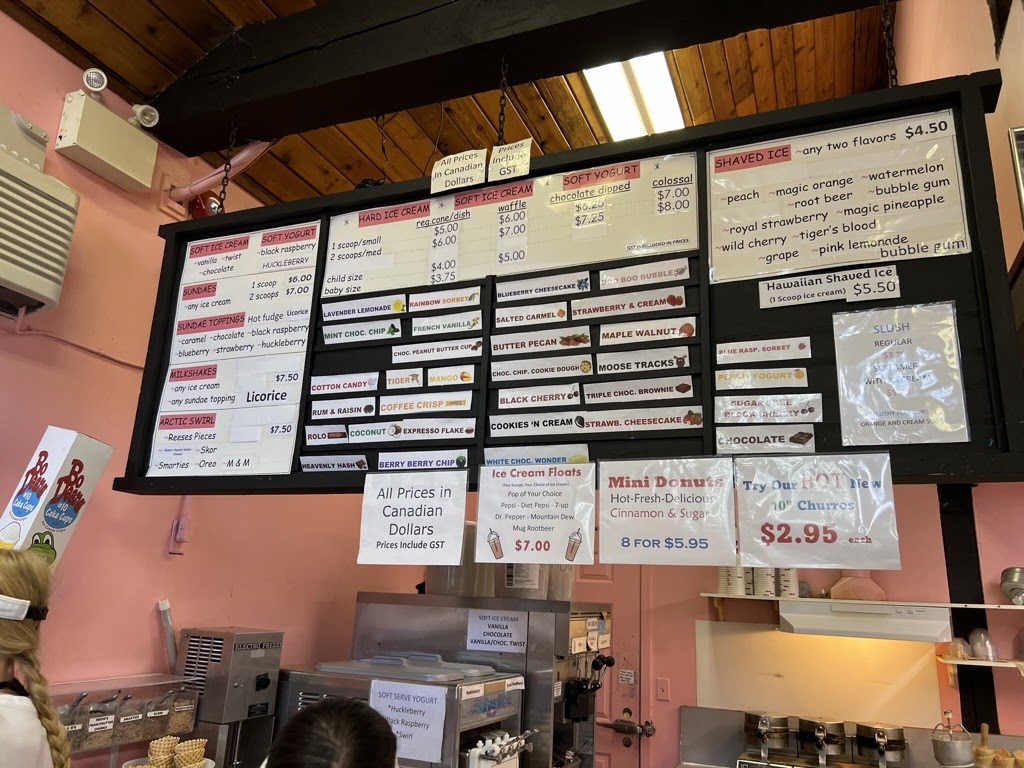 All Prices
in Canadian
Dollars
Prices
Include
GST
SOFT ICE CREAM
SOFT YOGURT
~vanilla ~twist
~chocolate
~black raspberry
HUCKLEBERRY
SUNDAES
~any ice cream
1 scoop $6.00
2 scoops $7.00
SUNDAE TOPPINGS
Hot fudge Licorice
~caramel ~chocolate ~black raspberry
~blueberry ~strawberry ~huckleberry
MILKSHAKES
$7.50
~any ice cream
~any sundae topping
Licorice
ARCTIC SWIRL
$7.50
~Reeses Pieces
~Skor
~Smarties ~Oreo ~M & M
HARD ICE CREAM
SOFT ICE CREAM
SOFT YOGURT
reg.cone/dish
waffle
chocolate dipped
colossal
1 scoop/small $5.00 $6.00 $6.25 $7.00
2 scoops/med $6.00 $7.00 $7.25 $8.00
child size $4.00 $5.00
baby size $3.75
GST INCLUDED IN PRICES
LAVENDER LEMONADE
RAINBOW SORBET
MINT CHOC. CHIP
FRENCH VANILLA
CHOC. PEANUT BUTTER CUP
COTTON CANDY
TIGER
MANGO
RUM & RAISIN
COFFEE CRISP
ROLO
COCONUT
EXPRESSO FLAKE
HEAVENLY HASH
BERRY BERRY CHIP
BLUEBERRY CHEESECAKE
BOO BUBBLE
SALTED CARMEL
STRAWBERRY & CREAM
BUTTER PECAN
MAPLE WALNUT
CHOC. CHIP. COOKIE DOUGH
MOOSE TRACKS
BLACK CHERRY
TRIPLE CHOC. BROWNIE
COOKIES 'N CREAM
STRAWB. CHEESECAKE
WHITE CHOC. WONDER
SHAVED ICE
~any two flavors $4.50
~peach ~magic orange ~watermelon
~root beer ~bubble gum
~royal strawberry ~magic pineapple
~wild cherry ~tiger's blood
~grape ~pink lemonade
bubble gum
Hawaiian Shaved Ice
(1 Scoop ice cream) $5.50
BLUE RASP. SORBET
PEACH YOGURT
SUGAR FREE
BLACK CHERRY
CHOCOLATE
SLUSH
REGULAR
SCREAMER
ORANGE AND CREAM
All Prices in
Canadian
Dollars
Prices Include GST
Ice Cream Floats
(Two Scoops, Your Choice of Ice Cream)
Pop of Your Choice
Pepsi - Diet Pepsi - 7-up
Dr. Pepper - Mountain Dew
Mug Rootbeer
$7.00
Mini Donuts
Hot-Fresh-Delicious
Cinnamon & Sugar
8 FOR $5.95
Try Our HOT New
10" Churros
$2.95 each
#10
Cake Cups
ELECTRO FREEZE
SOFT ICE CREAM
VANILLA
CHOCOLATE
VANILLA/CHOC. TWIST
SOFT SERVE YOGURT
*Huckleberry
Black Raspberry
*Swirl